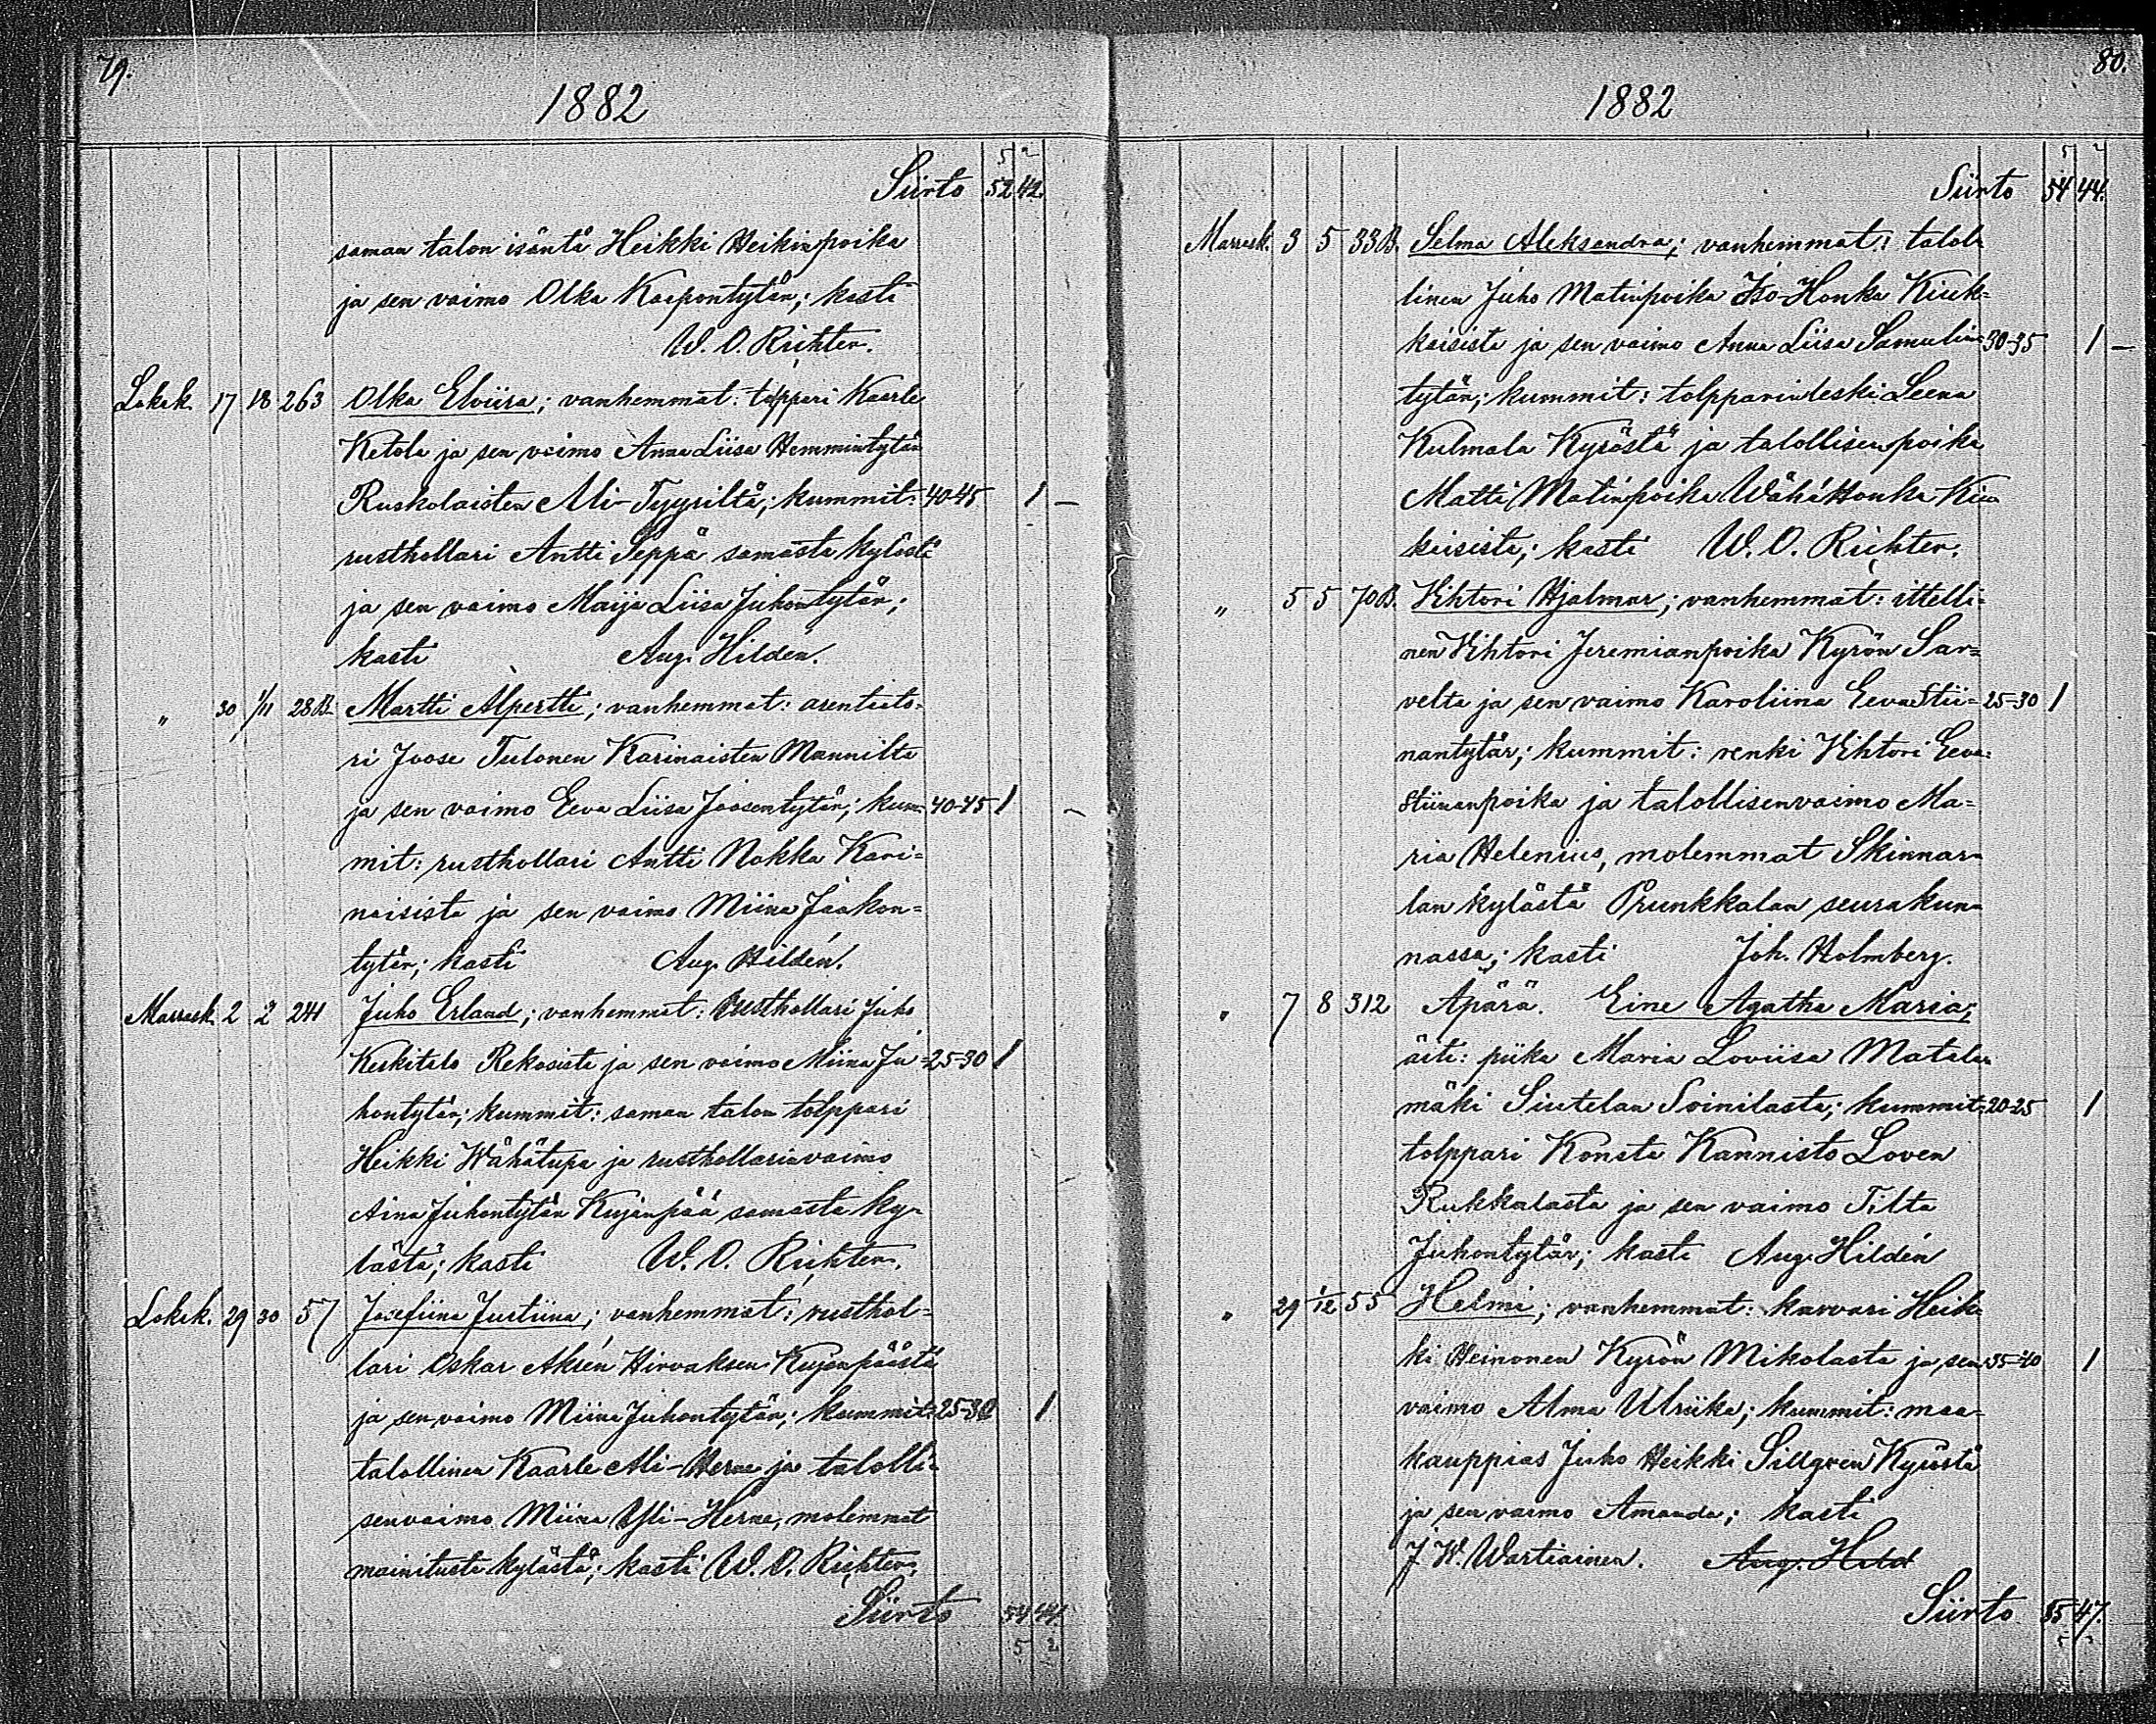 79.
1882
5 2
Siirto 52 42.
saman talon isäntä Heikki Heikinpoika
ja sen vaimo Olka Kaapontytär; kasti
W. O. Richter.
Lokak. 17 18 263 Olka Elviira; vanhemmat: tolppari Kaarle
Ketola ja sen vaimo Anna Liisa Hemmintytär
Ruskolaisten Ali-Tyyriltä; kummit: 40-45 1 —
rusthollari Antti Seppä samasta kylästä
ja sen vaimo Maija Liisa Juhontytär;
kasti Aug. Hildén.
„ 30 1/11 28B. Martti Alpertti; vanhemmat: arentaato=
ri Joose Tulonen Karinaisten Mannilta
ja sen vaimo Eeva Liisa Joosentytär; kum= 40-45 1
mit: rusthollari Antti Nokka Kari=
naisista ja sen vaimo Miina Jaakon=
tytär; kasti Aug. Hildén.
Marrask. 2 2 241 Juho Erland; vanhemmat: Rusthollari Juho
Keskitalo Rekosista ja sen vaimo Miina Ju= 25-30 1
hontytär; kummit: saman talon tolppari
Heikki Wähätupa ja rusthollarinvaimo
Aina Juhontytär Kujanpää samasta ky=
lästä; kasti W. O. Richter.
Lokak. 29 30 57 Josefiina Justiina; vanhemmat: rusthol=
lari Oskar Aksén Hirvaksen Kujanpäästä
ja sen vaimo Miina Juhontytär; kummit: 25-30 1
talollinen Kaarle Ali-Herne ja talolli=
senvaimo Miina Yli-Herne, molemmat
mainitusta kylästä; kasti W. O. Richter.
Siirto 54 44.
5 2
80.
1882
5 2
Siirto 54 44.
Marrask. 3 5 33B. Selma Aleksandra; vanhemmat: talol=
linen Juho Matinpoika Iso-Honka Kiuk=
kaisista ja sen vaimo Anna Liisa Samulin= 30-35 1 —
tytär; kummit: tolpparinleski Leena
Kulmala Kyröstä ja talollisenpoika
Matti Matinpoika Wähä Honka Kiu
kaisista; kasti W. O. Richter.
„ 5 5 70B. Vihtori Hjalmar; vanhemmat: ittelli=
nen Vihtori Jeremianpoika Kyrön Sar=
velta ja sen vaimo Karoliina Eevastii= 25-30 1
nantytär; kummit: renki Vihtori Eeva=
stiinanpoika ja talollisenvaimo Ma=
ria Helenius, molemmat Skinnar=
lan kylästä Prunkkalan seurakun=
nassa; kasti Joh. Holmberg.
„ 7 8 312 Äpärä. Eine Agatha Maria;
äiti: piika Maria Loviisa Matala=
mäki Siutelan Soinilasta; kummit: 20-25 1
tolppari Konsta Kannisto Loven
Rukkalasta ja sen vaimo Tilta
Juhontytär; kasti Aug. Hildén
„ 29 1/12 55 Helmi; vanhemmat: karvari Heik=
ki Heinonen Kyrön Mikolasta ja sen 35-40 1
vaimo Alma Ulriika; kummit: maa=
kauppias Juho Heikki Sillgren Kyröstä
ja sen vaimo Amanda; kasti
J. W. Wartiainen. Aug. Hild
Siirto 55 47.